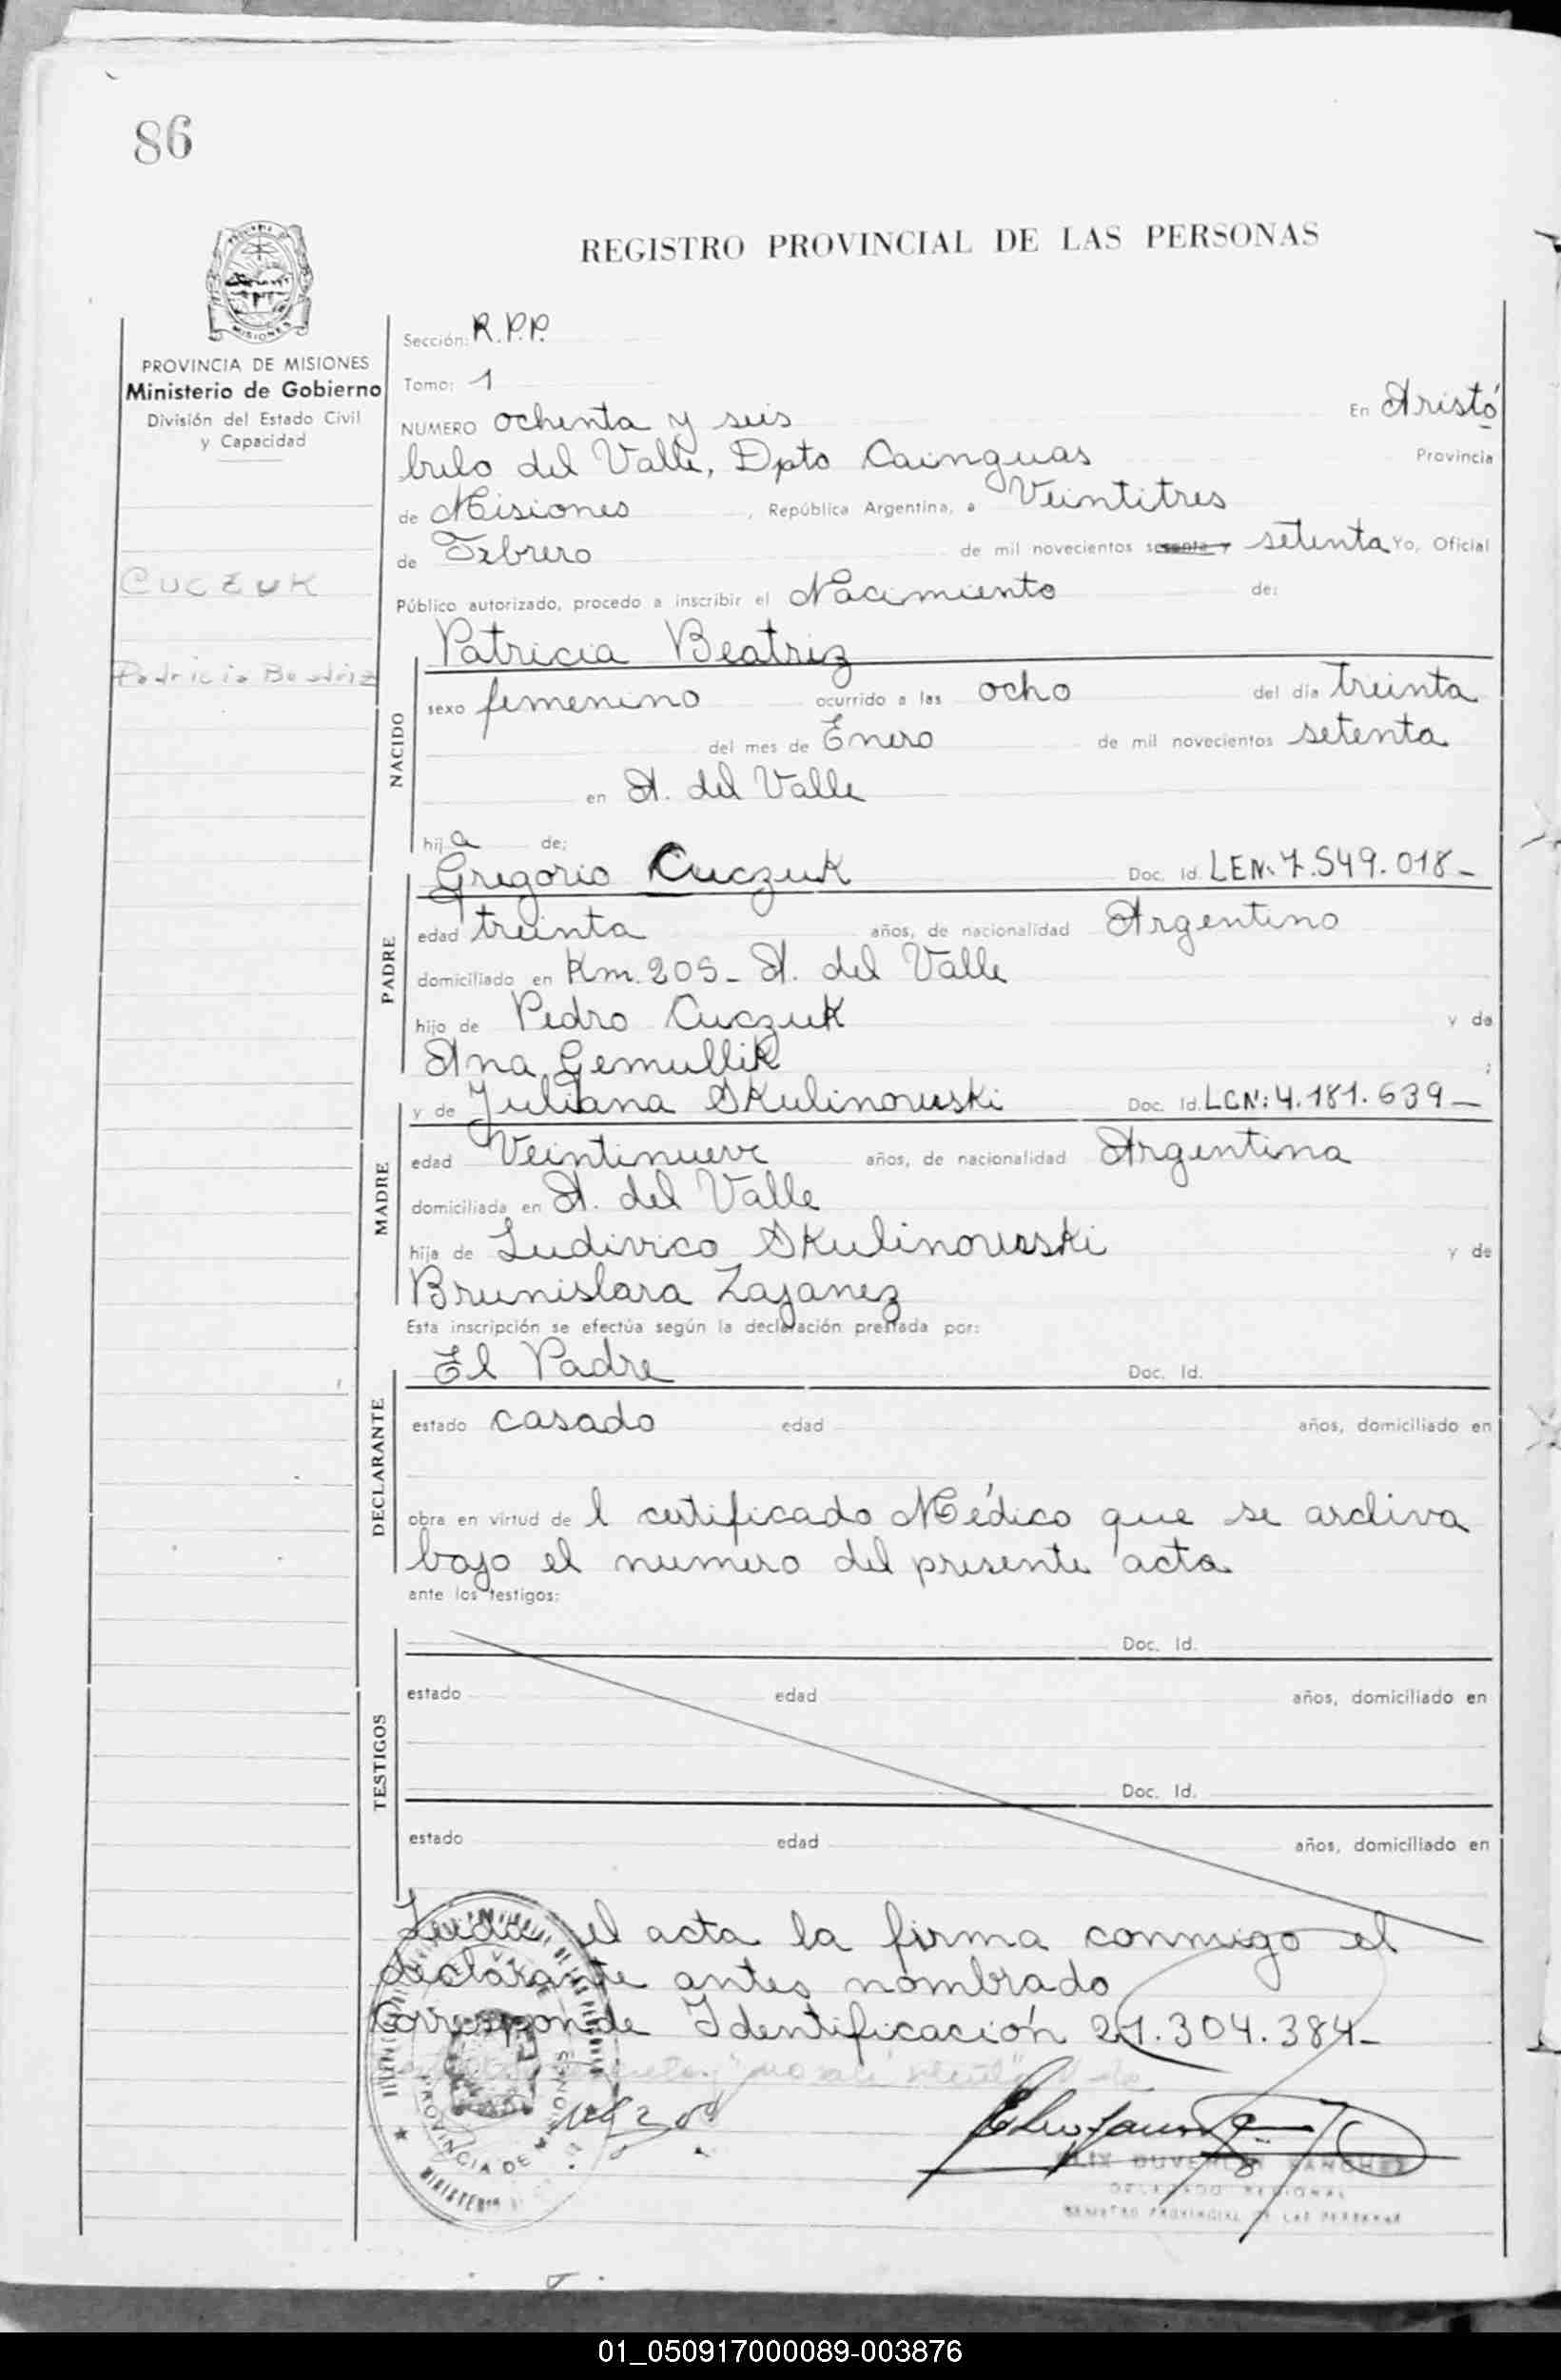 86
REGISTRO PROVINCIAL DE LAS PERSONAS
MISIONES
PROVINCIA DE MISIONES
Ministerio de Gobierno
División del Estado Civil
y Capacidad
CUCZUK
Patricia Beatriz
Sección: R.P.P.
Tomo: 1
NUMERO ochenta y seis En Aristó
bulo del Valle, Dpto Cainguas Provincia
de Misiones, República Argentina, a Veintitres
de Febrero de mil novecientos sesenta y setenta Yo, Oficial
Público autorizado, procedo a inscribir el Nacimiento de:
Patricia Beatriz
NACIDO
sexo femenino ocurrido a las ocho del día treinta
del mes de Enero de mil novecientos setenta
en A. del Valle
hij a de:
Gregorio Cuczuk Doc. Id. LEN: 7.549.018-
PADRE
edad treinta años, de nacionalidad Argentino
domiciliado en Km. 205- A. del Valle
hijo de Pedro Cuczuk y de
Ana Gemullik ;
y de Juliana Skulinowski Doc. Id. LCN: 4.181.639-
MADRE
edad Veintinueve años, de nacionalidad Argentina
domiciliada en A. del Valle
hija de Ludivico Skulinowski y de
Brunislava Zajanez
Esta inscripción se efectúa según la declaración prestada por:
El Padre Doc. Id.
DECLARANTE
estado casado edad años, domiciliado en
obra en virtud de l certificado Médico que se archiva
bajo el numero del presente acta
ante los testigos:
Doc. Id.
TESTIGOS
estado edad años, domiciliado en
Doc. Id.
estado edad años, domiciliado en
Leida el acta la firma conmigo el
declarante antes nombrado
Corresponde Identificación 21.304.384-
PROVINCIA DE
SANCHEZ
DELEGADO REGIONAL
REGISTRO PROVINCIAL DE LAS PERSONAS
01_050917000089-003876